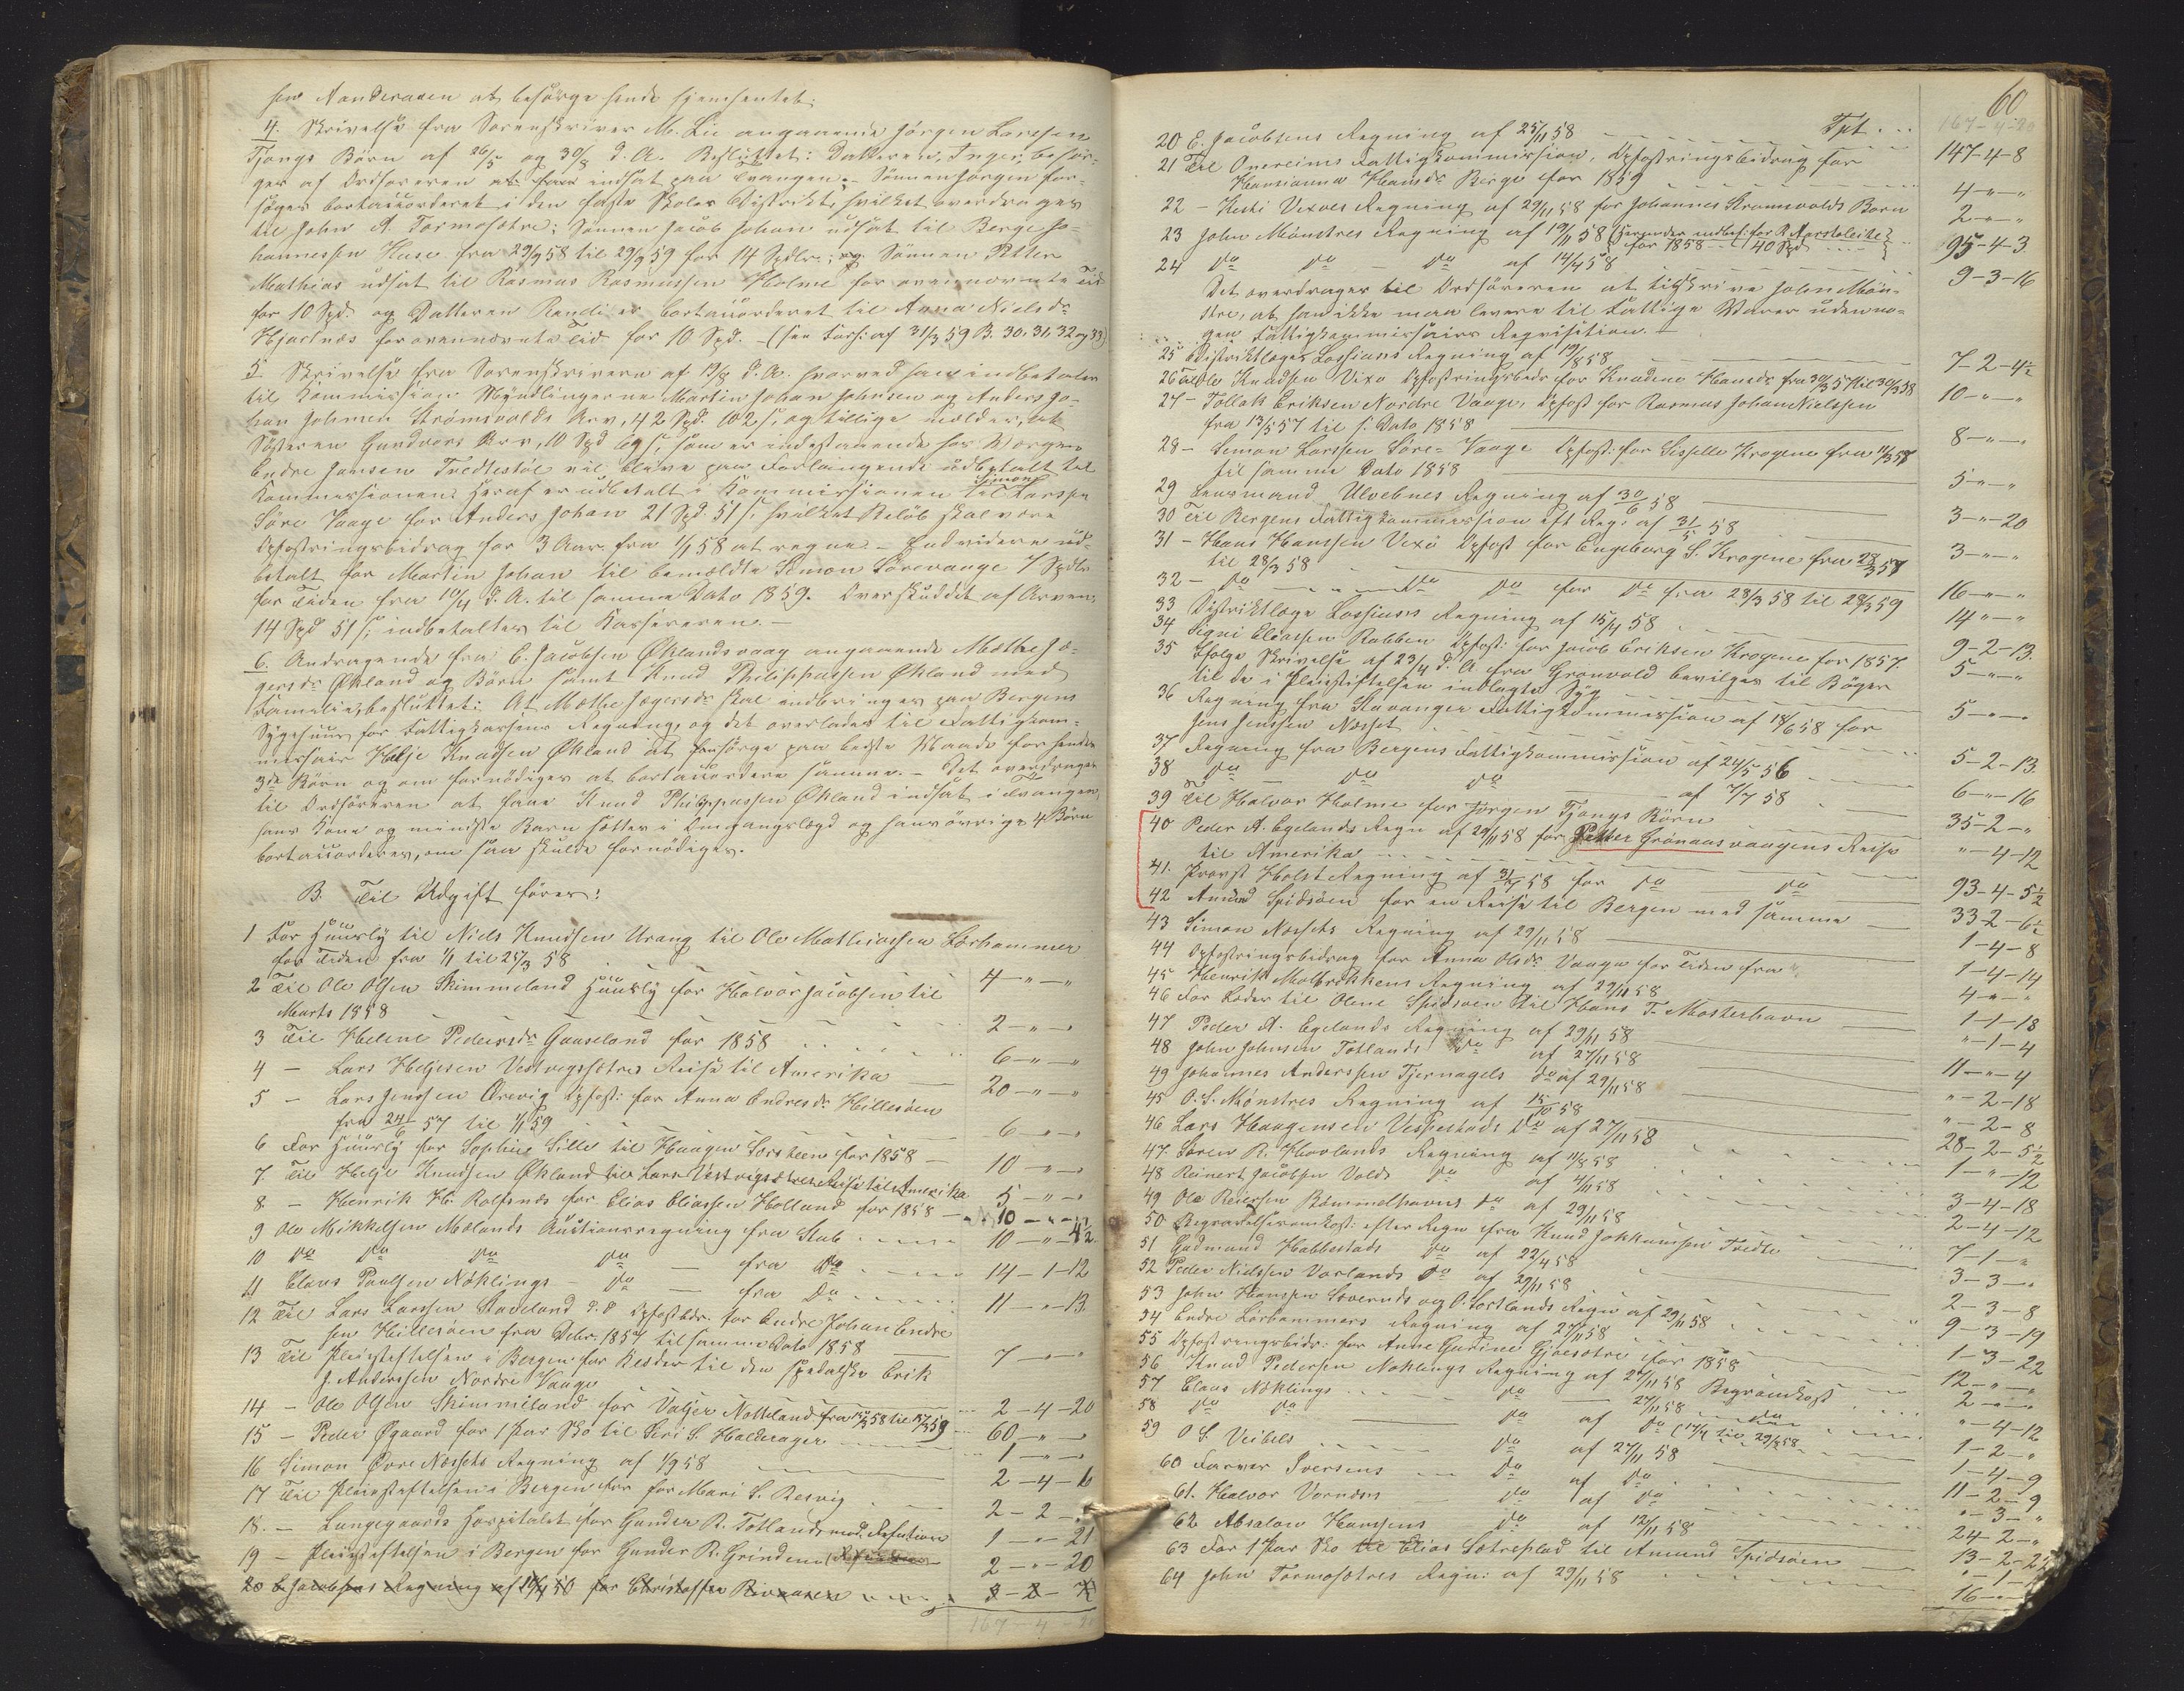 sen Nanderaaen at besörge hende hjemhentet.
4. Skrivelse fra Sorenskriver M. Lie angaaende Jörgen Larsen
Tjongs Börn af 26/5 og 30/8 d. A. Besluttet: Datteren, Inger, besör-
ges af Ordföreren at faa indsat paa Tvangen. Sönnen Jörgen for-
söges bortaccorderet i den faste Skoles Distrikt, hvilket overdrages
til John A. Tormosætre; Sönnen Jacob Johan udsat til Berge Jo-
hannessen Huse fra 29/9 58 til 29/9 59 for 14 Spdlr.; og Sönnen Petter
Mathias udsat til Rasmus Rasmussen Holme for ovennævnte Tid
for 10 Spd. og Datteren Randi er bortaccorderet til Anna Nielsdr
Hjartnæs for ovennævnte Tid for 10 Spd. (see Forh: af 31/3 59 B. 30, 31, 32 og 33)
5. Skrivelse fra Sorenskriveren af 19/8 d. A. hvorved han indbetaler
til Kommission Myndlingerne Martin Johan Johnsen og Anders Jo-
han Johnsen Strömsvolds Arv, 42 Spd. 102 s, og tillige melder, at
Sösteren Gundvors Arv, 10 Spd 69 s, som er indestaaende hos Værgen
Endre Jansen Tredtestöl vil blive paa Forlangende udbetalt til
Kommissionen. Heraf er udbetalt i Kommissionen til Simon Larssen
Söre Vaage for Anders Johan 21 Spd. 51 s, hvilket Belöb skal være
Opfostringsbidrag for 3 Aar fra 1/1 58 at regne. Endvidere ud-
betalt for Martin Johan til bemældte Simon Sörevaage 7 Spdlr
for Tiden fra 10/4 d. A. til samme Dato 1859. Overskuddet af Arven,
14 Spd 51 s, indbetales til Kassereren.
6. Andragende fra E. Jacobsen Öklandsvaag angaaende Mæthe Jæ-
gersdr Ökland og Börn samt Knud Philippussen Ökland med
Familie, besluttet: At Mæthe Jægersdr skal indbringes paa Bergens
Sygehuus for Fattigkassens Regning, og det overlades til Fattigcom-
missair Helje Knudsen Ökland at forsörge paa bedste Maade for hendes
3de Börn og om fornödiges at bortaccordere samme. - Det overdrages
til Ordföreren at faae Knud Philippussen Ökland indsat i Tvangen,
hans Kone og mindste Barn sættes i Omgangslægd og hans övrige 4 Börn
bortaccorderes, om saa skulde fornödiges.
B. Til Udgift föres:
1 For Huusly til Niels Knudsen Urang til Ole Mathiassen Lörhammer
for Tiden fra 1/1 til 25/3 58 4 - " - "
2 Til Ole Olsen Skimmeland Huusly for Halvor Jacobsen til
Marts 1858 2 - " - "
3 Til Helene Pedersdr Gaaseland for 1858 6 - " - "
4 - Lars Heljesen Vestvigsætres Reise til Amerika 20 - " - "
5 - Lars Jensen Ærevig Opfost: for Anna Endresdr Hillesöen
fra 24/6 57 til 1/1 59 6 - " - "
6 For Huusly for Sophie Lille til Haagen Torsteen for 1858 10 - " - "
7. Til Helje Knudsen Ökland til Lars Vestvigsætres Reise til Amerika 5 - " - "
8 - Henrik H. Rolfsnæs for Elias Eliassen Holland for 1858 10 - " - "
9 Ole Mikkelsen Mælands Auctionsregning fra Stab 10 - " - 4 1/2
10 do do do do fra do 14 - 1 - 12
11 Claus Paulsen Nöklings - do - fra do 11 - " - 13
12 Til Lars Larssen Stadeland d. d Opfostbdr. for Endre Johan Endre
sen Hillesöen fra Debr. 1857 til samme Dato 1858 7 - " - "
13 Til Pleiestiftelsen i Bergen for Klæder til den spedalske Erik
J. Anderssen Nordre Vaage 2 - 4 - 20
14 - Ole Olsen Skimmeland for Valjer Notteland fra 15/3 58 til 15/3 59 60 - " - "
15 - Peder Ögaard for 1 Par Sko til Siri S. Halderager 1 - " - "
16 Simon Övre Næssets Regning af 1/9 58 2 - 4 - 6
17 Til Pleiestiftelsen i Bergen for for Mari S. Resvig 2 - 2 -
18. - Lungegaards Hospitalet for Gunder R. Totland, mod Refution 1 - " - 21
19 - Pleiestiftelsen i Bergen for Gunder R. Grindem (Refution) 2 - " - 20
20 E. Jacobsens Regning af 14/4 58 for Christoffer Rivenæs 3 - 2 -
167 - 4 - 20
60
Tpt. 167 - 4 - 20
20 E. Jacobsens Regning af 25/11 58 147 - 4 - 8
21 Til Qvereims Fattigkommission, Opfostringsbidrag for
Hansianna Hansdr Berge for 1859 4 - " - "
22 - Kisti Vixoes Regning af 29/11 58 for Johannes Strömsvolds Barn 2 - " - "
23 John Mönstres Regning af 19/11 58 (herunder indbef: for R. Aarskleite for 1858 40 Spd) 95 - 4 - 3
24 do do - do af 14/4 58 9 - 3 - 16
Det overdrages til Ordföreren at tilskrive John Mön-
stre, at han ikke maa levere til Fattige Varer uden no-
gen Fattigkommissairs Reqvisition.
25 Distriktlæge Lossiuss Regning af 19/8 58 7 - 2 - 4 1/2
26 Til Ole Knudsen Vixo Opfostringsbdr for Knudine Hansdr fra 30/3 57 til 30/3 58 10 - " - "
27 - Tollak Eriksen Nordre Vaage, Opfost for Rasmus Johan Nielssen
fra 13/5 57 til s. Dato 1858 8 - " - "
28 - Simon Larssen Söre-Vaage Opfost: for Sisselle Krogene fra 11/3 57
til samme Dato 1858 5 - " - "
29 Lensmand Ulvebnes Regning af 30/6 58 3 - " - 20
30 Til Bergens Fattigkommission eft Regn: af 31/5 58 3 - " - "
31 - Hans Hanssen Vixö Opfost for Engeborg S. Krogene fra 28/3 57
til 28/3 58 16 - " - "
32 - do do do for do fra 28/3 58 til 28/3 59 14 - " - "
33 Distriktlæge Lossiuss Regning af 15/4 58 9 - 2 - 13
34 Signi Eliassen Rabben Opfost: for Jacob Eriksen Krogene for 1857. 5 - " - "
35 Ifölge Skrivelse af 23/4 d. A. fra Grönvold bevilges til Böger
til de i Pleiestiftelsen indlagte Syge 5 - " - "
36 Regning fra Stavanger Fattigkommission af 18/6 58 for
Jens Jenssen Næsset 5 - 2 - 13
37 Regning fra Bergens Fattigkommission af 24/5 56 6 - " - 16
38 do - do do - af 7/7 58 35 - 2 - "
39 Til Halvor Holme for Jörgen Tjongs Börn " - 4 - 12
40 Peder A. Egelands Regn af 29/11 58 for Petter Grönaasvaagens Reise
til Amerika 93 - 4 - 5 1/2
41. Provst Holst Regning af 31/7 58 for do do 33 2 - 6 1/2
42 Amund Spidsöen for en Reise til Bergen med samme 1 - 4 - 8
43 Simon Næssets Regning af 29/11 58 1 - 4 - 14
44 Opfostringsbidrag for Anna Olsdr Vaage for Tiden fra 4 - " - "
45 Henrik Molbrokkens Regning af 29/11 58 1 - 1 - 18
46 For Læder til Olene Spidsöen til Hans T. Mosterhavn " - 1 - 4
47 Peder A. Egelands Regning af 29/11 58 11 - " - 4
48 John Johnsen Totlands do af 27/11 58 " - 2 - 18
49 Johannes Anderssen Tjernagels do af 29/11 58 " - 2 - 8
45 O. S. Mönstres Regning af 15/10 58 28 - 2 - 5 1/2
46 Lars Haagensen Vespestads do af 27/11 58 1 - " - 12
47. Sören R. Hovlands Regning af 11/8 58 3 - 4 - 18
48 Reinert Jacobsen Volds do af 4/11 58 2 - 4 - 12
49 Ole Reiersen Bömmelhavns do af 29/11 58 7 - 1 - "
50 Begravelsesomkost: efter Regn fra Knud Jokkumsen Tredte 3 - 3 - "
51 Gudmund Habbestads do af 22/4 58 2 - 3 - 8
52 Peder Nielssen Vorlands do af 29/11 58 9 - 3 - 19
53 John Hanssen Hovernds og O. Sortlands Regn af 29/11 58 1 - 3 - 22
54 Endre Lörhammers Regning af 27/11 58 12 - " - "
55 Opfostringsbidr: for Anne Gurine Gjösætre for 1858 2 - " - "
56 Knud Pedersen Noklings Regning af 27/11 58 Begravkost " - 4 - 12
57 Claus Nöklings do 27/11 58 do 1 - 2 - "
58 do do do af do (14/4 til 29/8 58 1 - 4 - 9
59 O S. Veibels do af 27/11 58 11 - 2 - 9
60 Farver Iversens do af do " - 3 - "
61. Halvor Vornæss do af do 24 - 2 - "
62 Absalon Hanssens do af 12/11 58 13 - 2 - 2
63 For 1 Par Sko til Elias Sætreplad til Amund Spidsöen " - 1 -
64 John Tormosætres Regn: af 29/11 58 16 - " -